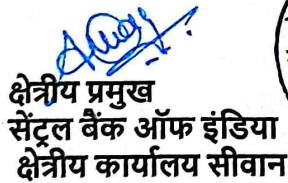 क्षेत्रीय प्रमुख
सेंट्रल बैंक ऑफ इंडिया
क्षेत्रीय कार्यालय सीवान